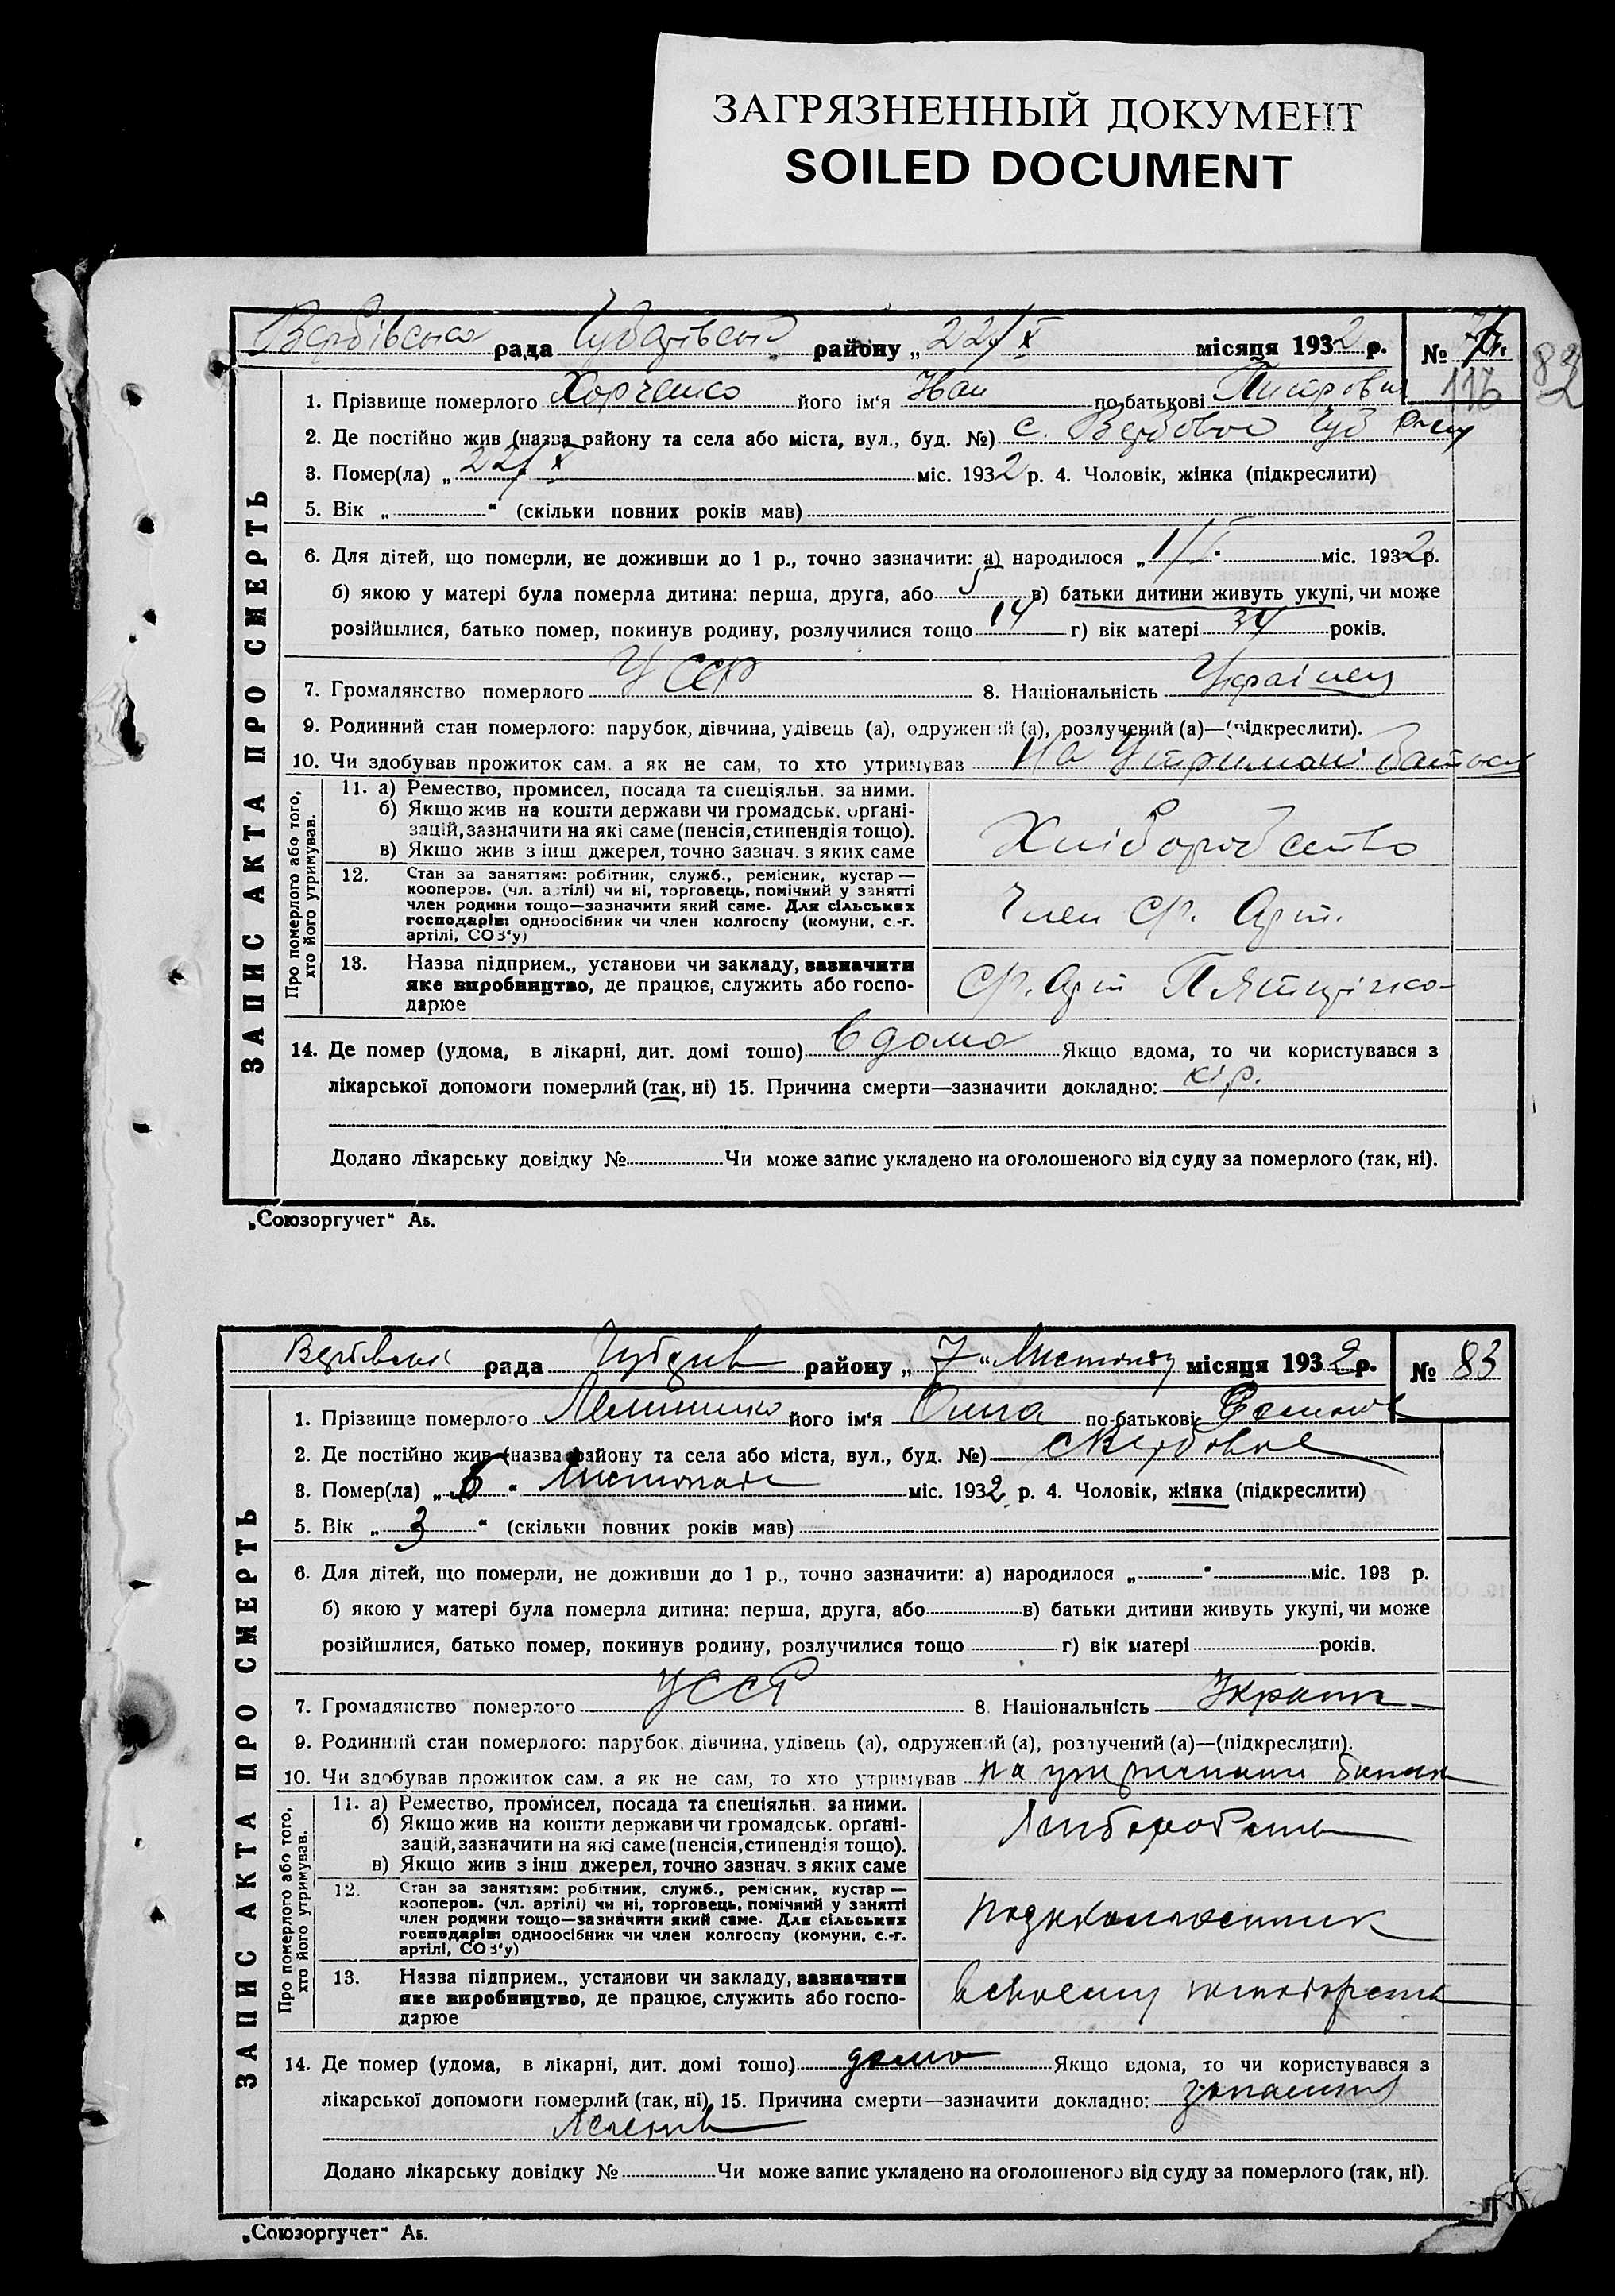 ЗАГРЯЗНЕННЫЙ ДОКУМЕНТ
SOILED DOCUMENT
Вербівська рада Чубарівськ району „ 22/X місяця 1932 р. №
116 82
1. Прізвище померлого Хорченко його ім'я Иван по-батькові
2. Де постійно жив (назва району та села або міста, вул., буд. №) с. Вербовое Чуб
3. Помер(ла) „ 22/X міс. 1932 р. 4. Чоловік, жінка (підкреслити)
5. Вік „ “ (скільки повних років мав)
6. Для дітей, що померли, не доживши до 1 р., точно зазначити: а) народилося „ 1/I міс. 1932 р.
б) якою у матері була померла дитина: перша, друга, або 5 в) батьки дитини живуть укупі, чи може
розійшлися, батько помер, покинув родину, розлучилися тощо 14 г) вік матері 34 років.
7. Громадянство померлого УССР 8. Національність Украінец
9. Родинний стан померлого: парубок, дівчина, удівець (а), одружений (а), розлучений (а)—(підкреслити).
10. Чи здобував прожиток сам, а як не сам, то хто утримував На Утримані
ЗАПИС АКТА ПРО СМЕРТЬ
Про померлого або того, хто його утримував.
11. а) Ремество, промисел, посада та спеціяльн. за ними.
б) Якщо жив на кошти держави чи громадськ. орґані-
зацій, зазначити на які саме (пенсія, стипендія тощо).
в) Якщо жив з інш джерел, точно зазнач. з яких саме
Хлібороб ство
12. Стан за заняттям: робітник, служб., ремісник, кустар —
кооперов. (чл. артілі) чи ні, торговець, помічний у занятті
член родини тощо—зазначити який саме. Для сільських
господарів: одноосібник чи член колгоспу (комуни, с.-г.
артілі, СОЗ'у)
Член Ср. Арт.
13. Назва підприєм., установи чи закладу, зазначити
яке виробництво, де працює, служить або госпо-
дарює
Ср. Арт
14. Де помер (удома, в лікарні, дит. домі тощо) в дома Якщо вдома, то чи користувався з
лікарської допомоги померлий (так, ні) 15. Причина смерти—зазначити докладно: кір.
Додано лікарську довідку № Чи може запис укладено на оголошеного від суду за померлого (так, ні).
„Союзоргучет“ Аб.
рада району „ 7 “ місяця 1932 р. № 83
1. Прізвище померлого його ім'я по-батькові
2. Де постійно жив (назва району та села або міста, вул., буд. №) с Вербовое
3. Помер(ла) „ 6 “ Листопада міс. 1932 р. 4. Чоловік, жінка (підкреслити)
5. Вік „ 3 “ (скільки повних років мав)
6. Для дітей, що померли, не доживши до 1 р., точно зазначити: а) народилося „ “ міс. 193 р.
б) якою у матері була померла дитина: перша, друга, або в) батьки дитини живуть укупі, чи може
розійшлися, батько помер, покинув родину, розлучилися тощо г) вік матері років.
7. Громадянство померлого УССР 8. Національність
9. Родинний стан померлого: парубок, дівчина, удівець (а), одружений (а), розлучений (а)—(підкреслити).
10. Чи здобував прожиток сам, а як не сам, то хто утримував на
ЗАПИС АКТА ПРО СМЕРТЬ
Про померлого або того, хто його утримував.
11. а) Ремество, промисел, посада та спеціяльн. за ними.
б) Якщо жив на кошти держави чи громадськ. орґані-
зацій, зазначити на які саме (пенсія, стипендія тощо).
в) Якщо жив з інш джерел, точно зазнач. з яких саме
12. Стан за заняттям: робітник, служб., ремісник, кустар —
кооперов. (чл. артілі) чи ні, торговець, помічний у занятті
член родини тощо—зазначити який саме. Для сільських
господарів: одноосібник чи член колгоспу (комуни, с.-г.
артілі, СОЗ'у)
13. Назва підприєм., установи чи закладу, зазначити
яке виробництво, де працює, служить або госпо-
дарює
14. Де помер (удома, в лікарні, дит. домі тощо) дома Якщо вдома, то чи користувався з
лікарської допомоги померлий (так, ні) 15. Причина смерти—зазначити докладно:
Додано лікарську довідку № Чи може запис укладено на оголошеного від суду за померлого (так, ні).
„Союзоргучет“ Аб.